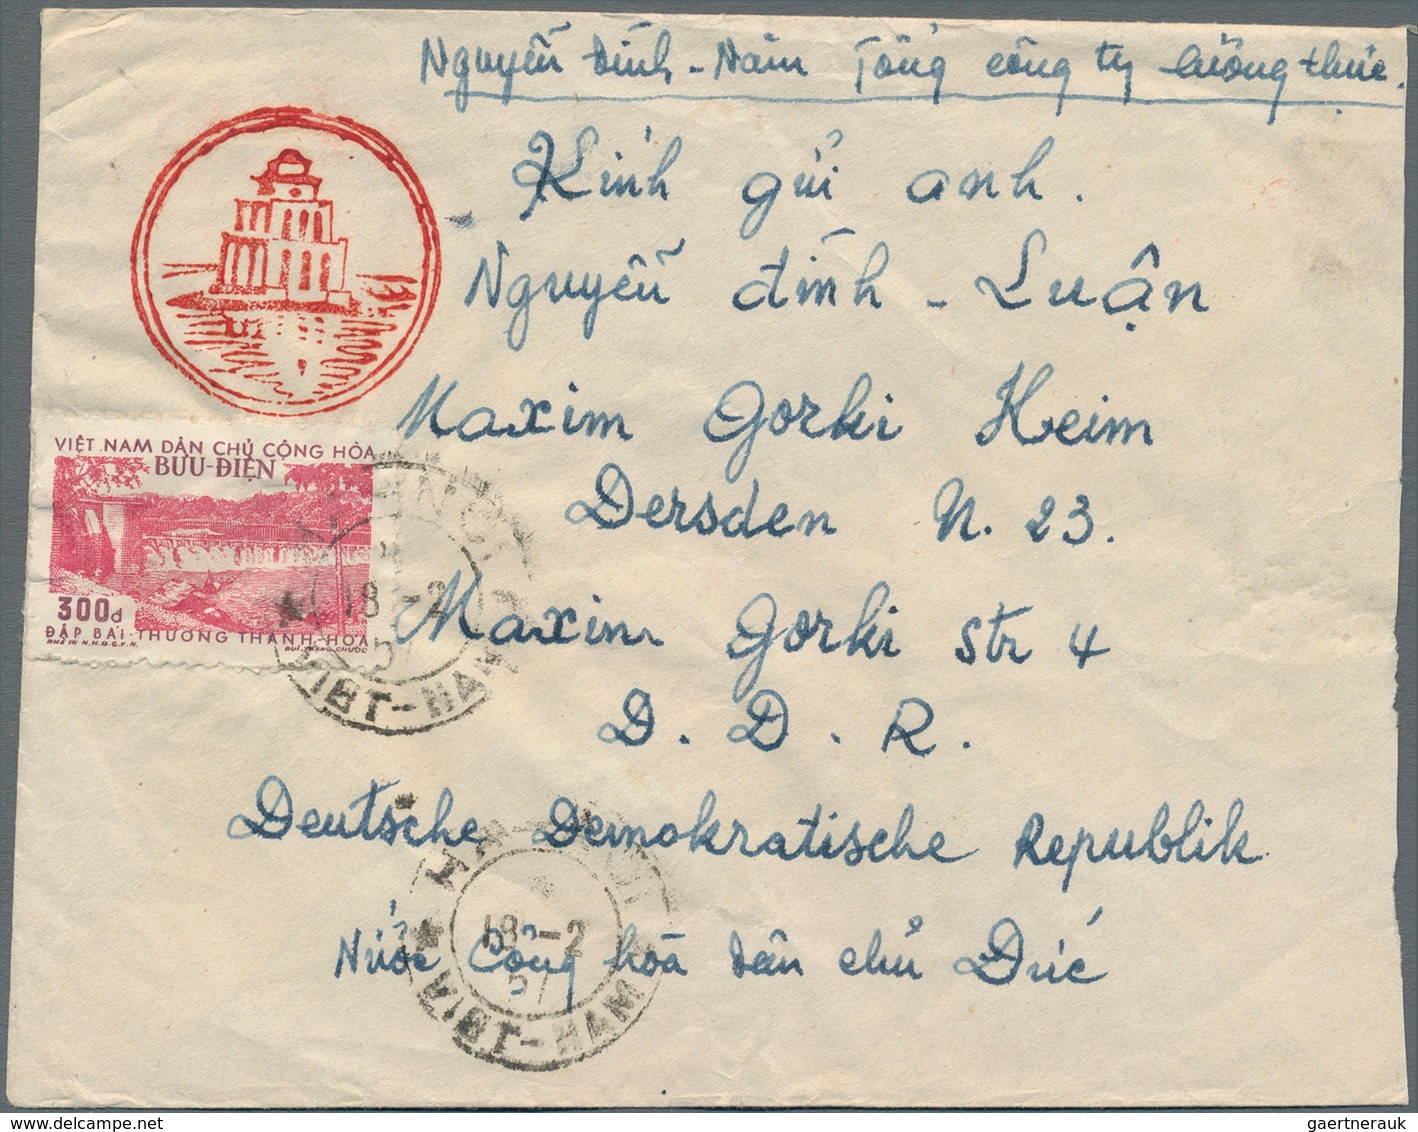 Nguyễn Đình - Nam Tổng công ty lương thực.
Kính gửi anh.
Nguyễn đình - Luận
Maxim Gorki Heim
Dersden N. 23.
Maxim Gorki Str 4
D. D. R.
Deutsche Demokratische Republik
Nước Cộng hòa dân chủ Đức
VIỆT NAM DÂN CHỦ CỘNG HÒA
BƯU-ĐIỆN
300đ
ĐẬP BÁI-THƯỢNG THANH-HÓA
18-2
57
VIỆT-NAM
18-2
57
VIỆT-NAM
gaertnerauk